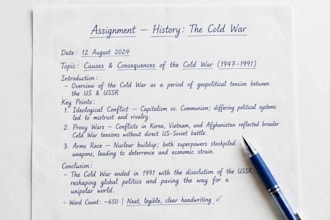 Assignment — History: The Cold War
Date: 12 August 2024
Topic: Causes & Consequences of the Cold War (1947-1991)
Introduction:
- Overview of the Cold War as a period of geopolitical tension between
the US & USSR
Key Points:
1. Ideological Conflict – Capitalism vs. Communism; differing political systems
led to mistrust and rivalry.
2. Proxy Wars – Conflicts in Korea, Vietnam, and Afghanistan reflected broader
Cold War tensions without direct US-Soviet battle.
3. Arms Race – Nuclear buildup; both superpowers stockpiled
weapons, leading to deterrence and economic strain.
Conclusion:
- The Cold War ended in 1991 with the dissolution of the USSR,
reshaping global politics and paving the way for a
unipolar world.
- Word Count: ~650 | Neat, legible, clear handwriting ✓